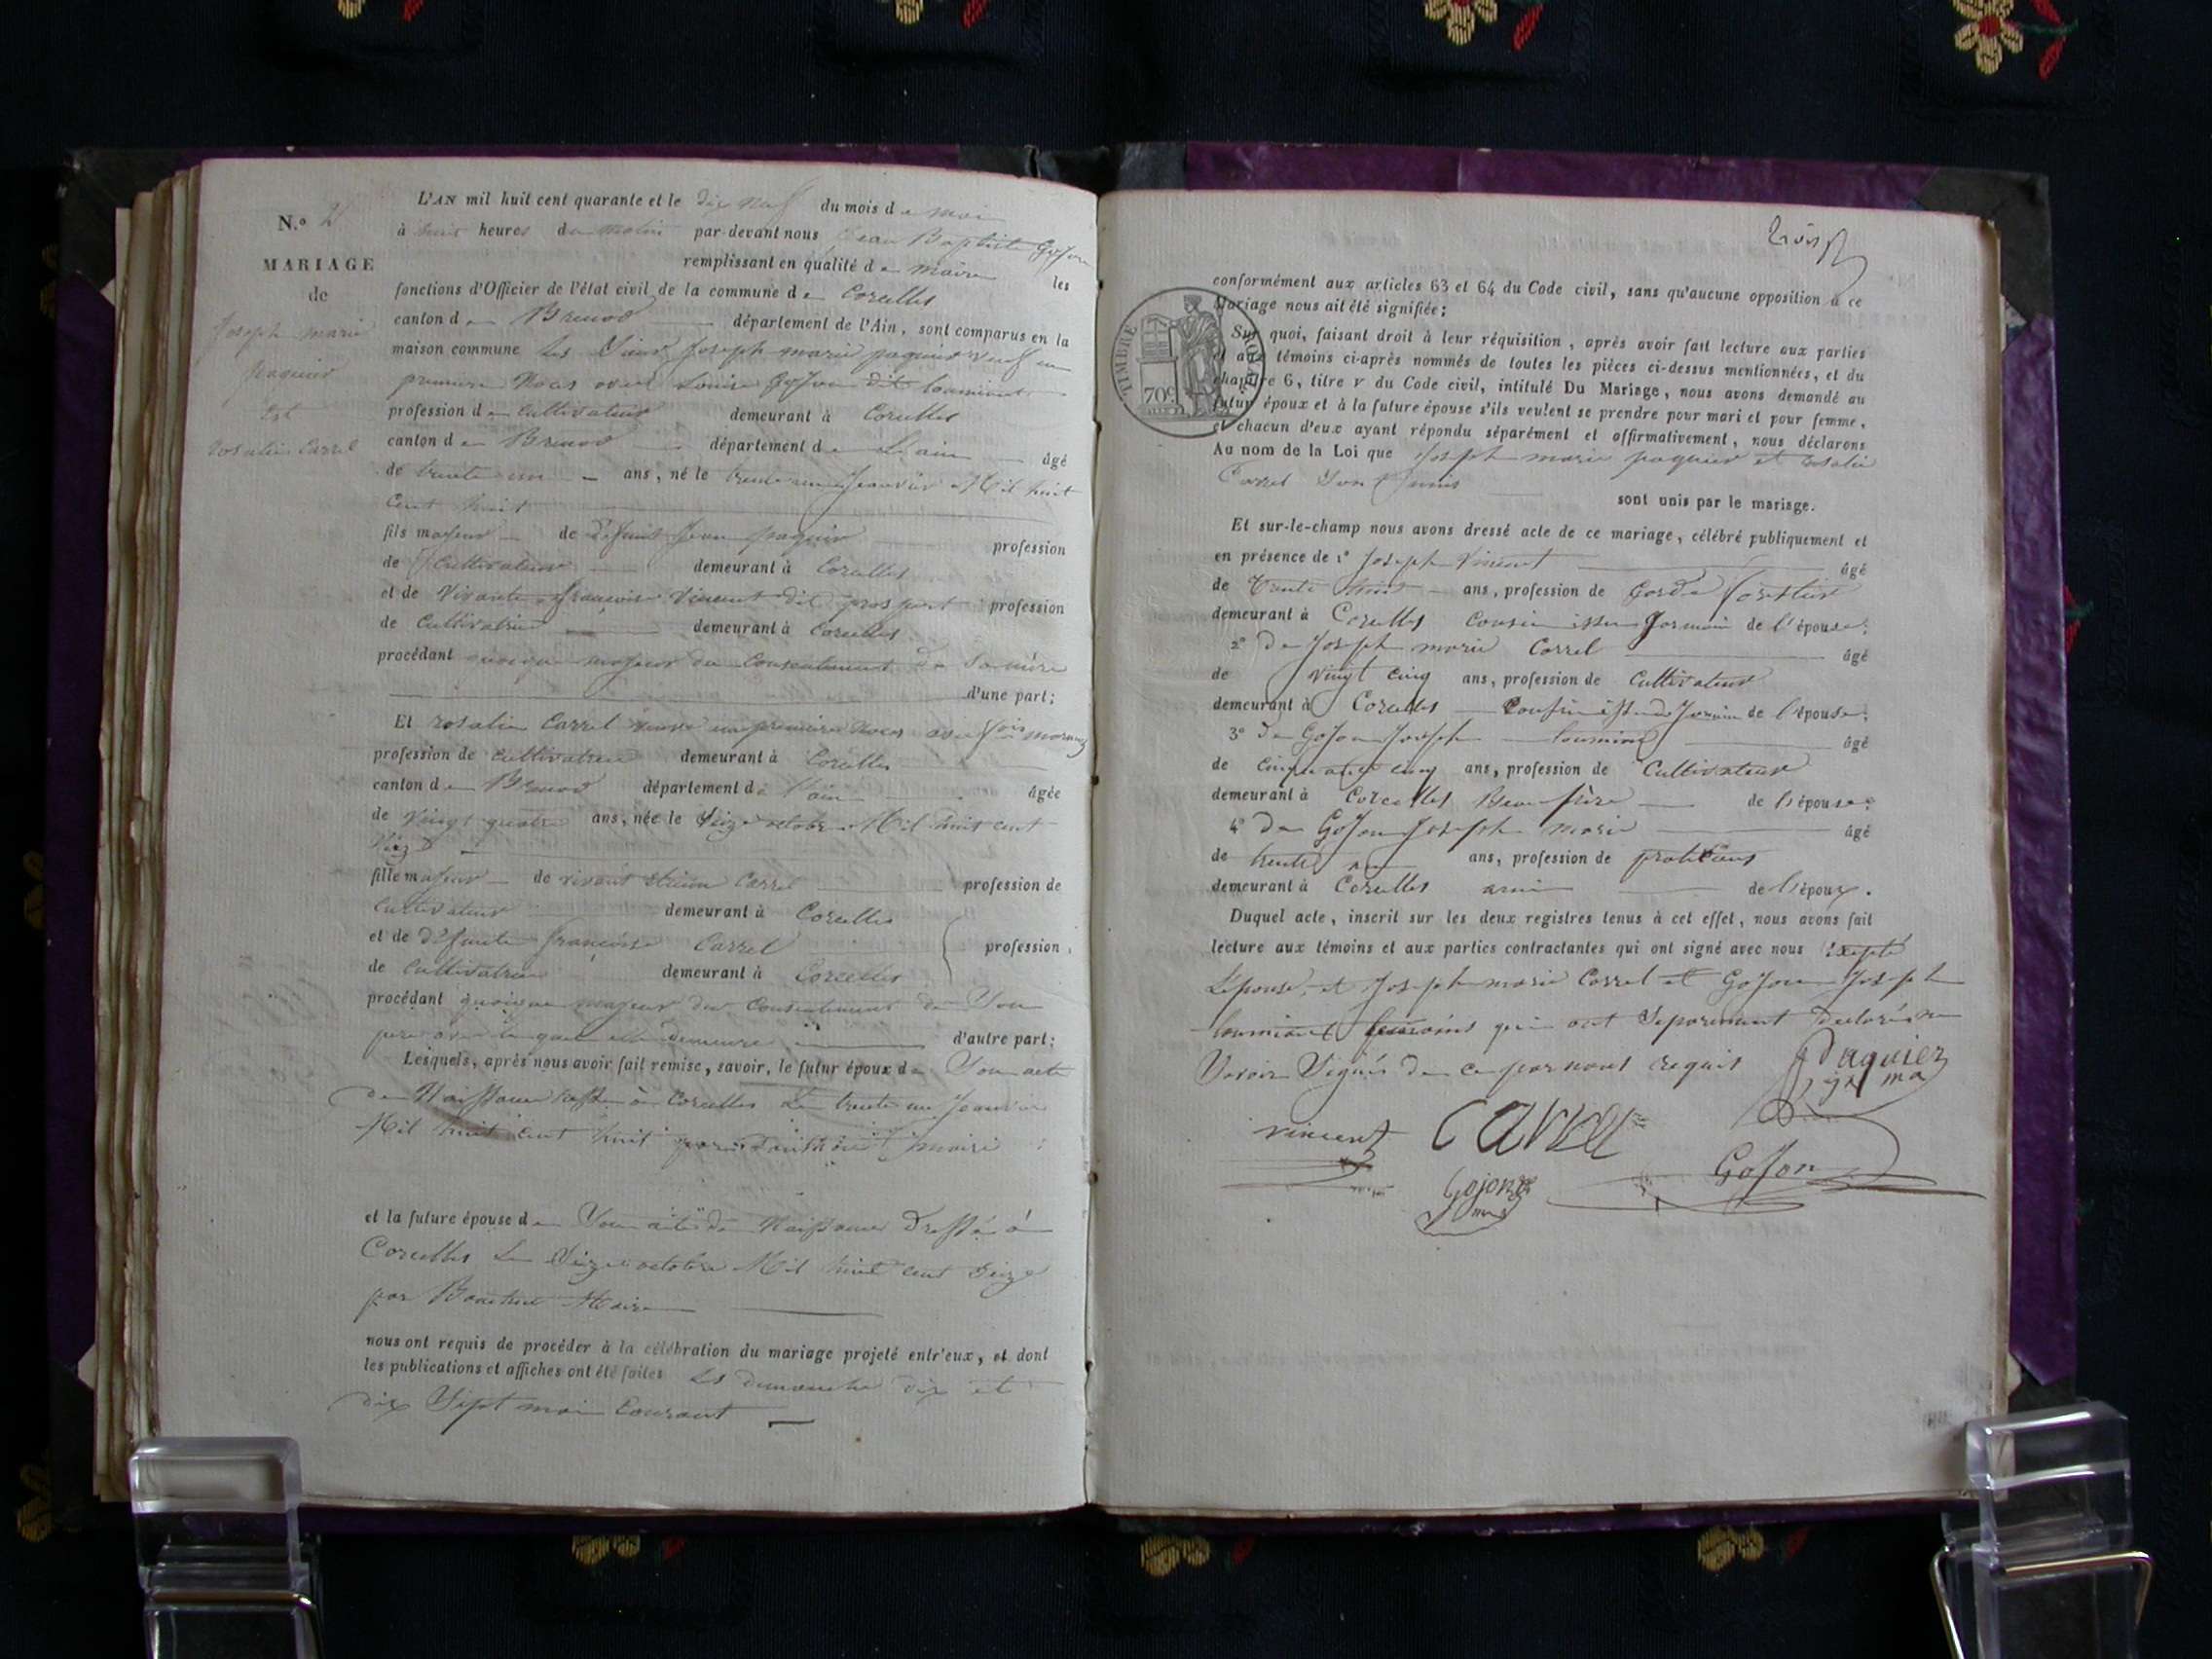 N.o 2
MARIAGE
de
Joseph marie
paquier
Et
rosalie Carrel
L'AN mil huit cent quarante et le dix neuf du mois de mai
à huit heures du matin par-devant nous Jean Baptiste Gojon
remplissant en qualité de maire les
fonctions d'Officier de l'état civil de la commune de Corcelles
canton de Brenod département de l'Ain, sont comparus en la
maison commune Les Sieur Joseph marie paquier veuf en
premiere Noces avec Louise Gojon dit
profession de Cultivateur demeurant à Corcelles
canton de Brenod département de L'ain âgé
de trente un ans, né le trente un Jeanvier Mil huit
Cent huit
fils majeur de défunt Jean paquier profession
de Cultivateur demeurant à Corcelles
et de Vivante françoise Vincent dit prospert profession
de Cultivatrice demeurant à Corcelles
procédant quoique majeur du Consentement de Sa mère
d'une part;
Et rosalie Carrel veuve en premiere Noces avec
profession de cultivatrice demeurant à Corcelles
canton de Brenod département de l'ain âgée
de vingt quatre ans, née le Seize octobre Mil huit cent
Seize
fille majeur de vivant Carrel profession de
Cultivateur demeurant à Corcelles
et de Défunte françoise Carrel profession
de Cultivatrice demeurant à Corcelles
procédant quoique majeur du Consentement de Son
pere avec lequel elle demeure d'autre part;
Lesquels, après nous avoir fait remise, savoir, le futur époux de Son acte
de Naissance à Corcelles Le trente un Jeanvier
Mil huit cent huit par maire
et la future épouse de Son acte de Naissance Dressé à
Corcelles Le Seize octobre Mil huit cent Seize
par Maire
nous ont requis de procéder à la célébration du mariage projeté entr'eux, et dont
les publications et affiches ont été faites Les dimanche dix et
dix Sept mai Courant
conformément aux articles 63 et 64 du Code civil, sans qu'aucune opposition à ce
Mariage nous ait été signifiée;
TIMBRE ROYAL
70c
Sur quoi, faisant droit à leur réquisition, après avoir fait lecture aux parties
et aux témoins ci-après nommés de toutes les pièces ci-dessus mentionnées, et du
chapitre 6, titre v du Code civil, intitulé Du Mariage, nous avons demandé au
futur époux et à la future épouse s'ils veulent se prendre pour mari et pour femme,
et chacun d'eux ayant répondu séparément et affirmativement, nous déclarons
Au nom de la Loi que Joseph marie paquier et rosalie
Carrel Sont unis
sont unis par le mariage.
Et sur-le-champ nous avons dressé acte de ce mariage, célébré publiquement et
en présence de 1o Joseph Vincent âgé
de Trente huit ans, profession de Garde forestier
demeurant à Corcelles Cousin issu Germain de l'épouse;
2o De Joseph marie Carrel âgé
de Vingt cinq ans, profession de Cultivateur
demeurant à Corcelles Cousin issu de Germain de l'épouse;
3o De Gojon Joseph âgé
de Cinquante cinq ans, profession de Cultivateur
demeurant à Corcelles Beau frère de l'épouse;
4o De Gojon Joseph marie âgé
de trente un ans, profession de
demeurant à Corcelles ami de l'époux.
Duquel acte, inscrit sur les deux registres tenus à cet effet, nous avons fait
lecture aux témoins et aux parties contractantes qui ont signé avec nous Excepté
L'épouse et Joseph marie Carrel et Gojon Joseph
témoins qui ont Séparément Déclarés ne
Savoir Signés de ce par nous requis
paquier
vincent Carrel
Gojon
Gojon